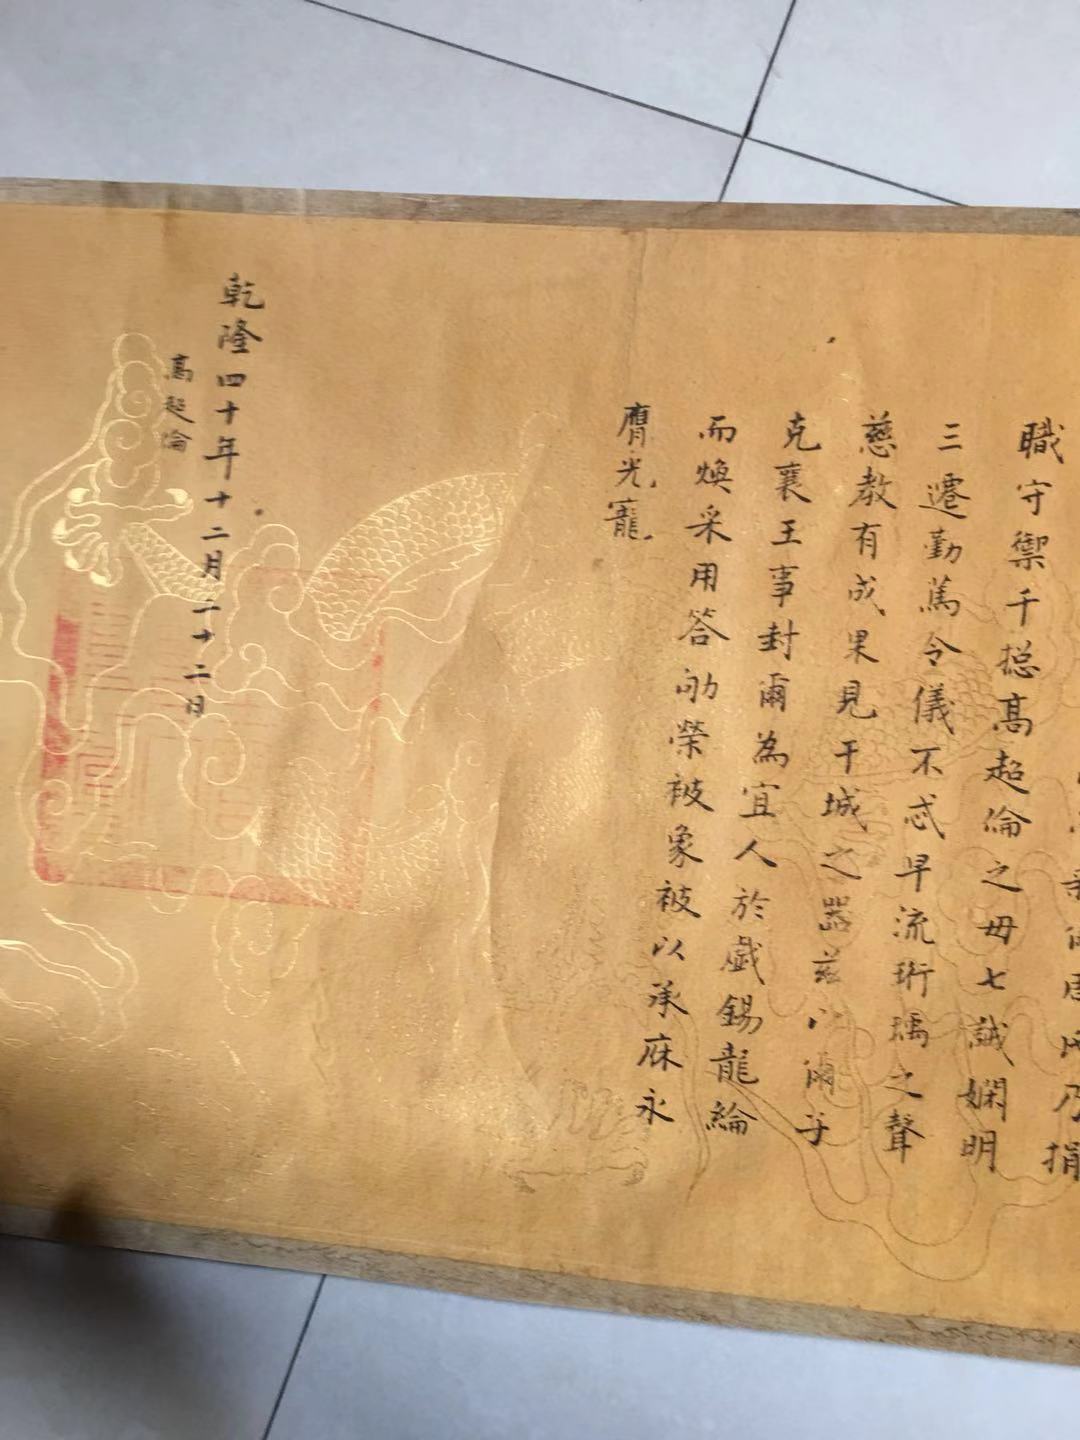 氏乃捐
職守禦千揔髙超倫之毋七誡嫻明
三遷勤篤令儀不忒早流珩瑀之聲
慈教有成果見干城之器茲以爾子
克襄王事封爾為宜人於戲錫龍綸
而煥采用答劬榮被象被以承庥永
膺光寵
乾隆四十年十二月二十二日
髙超倫